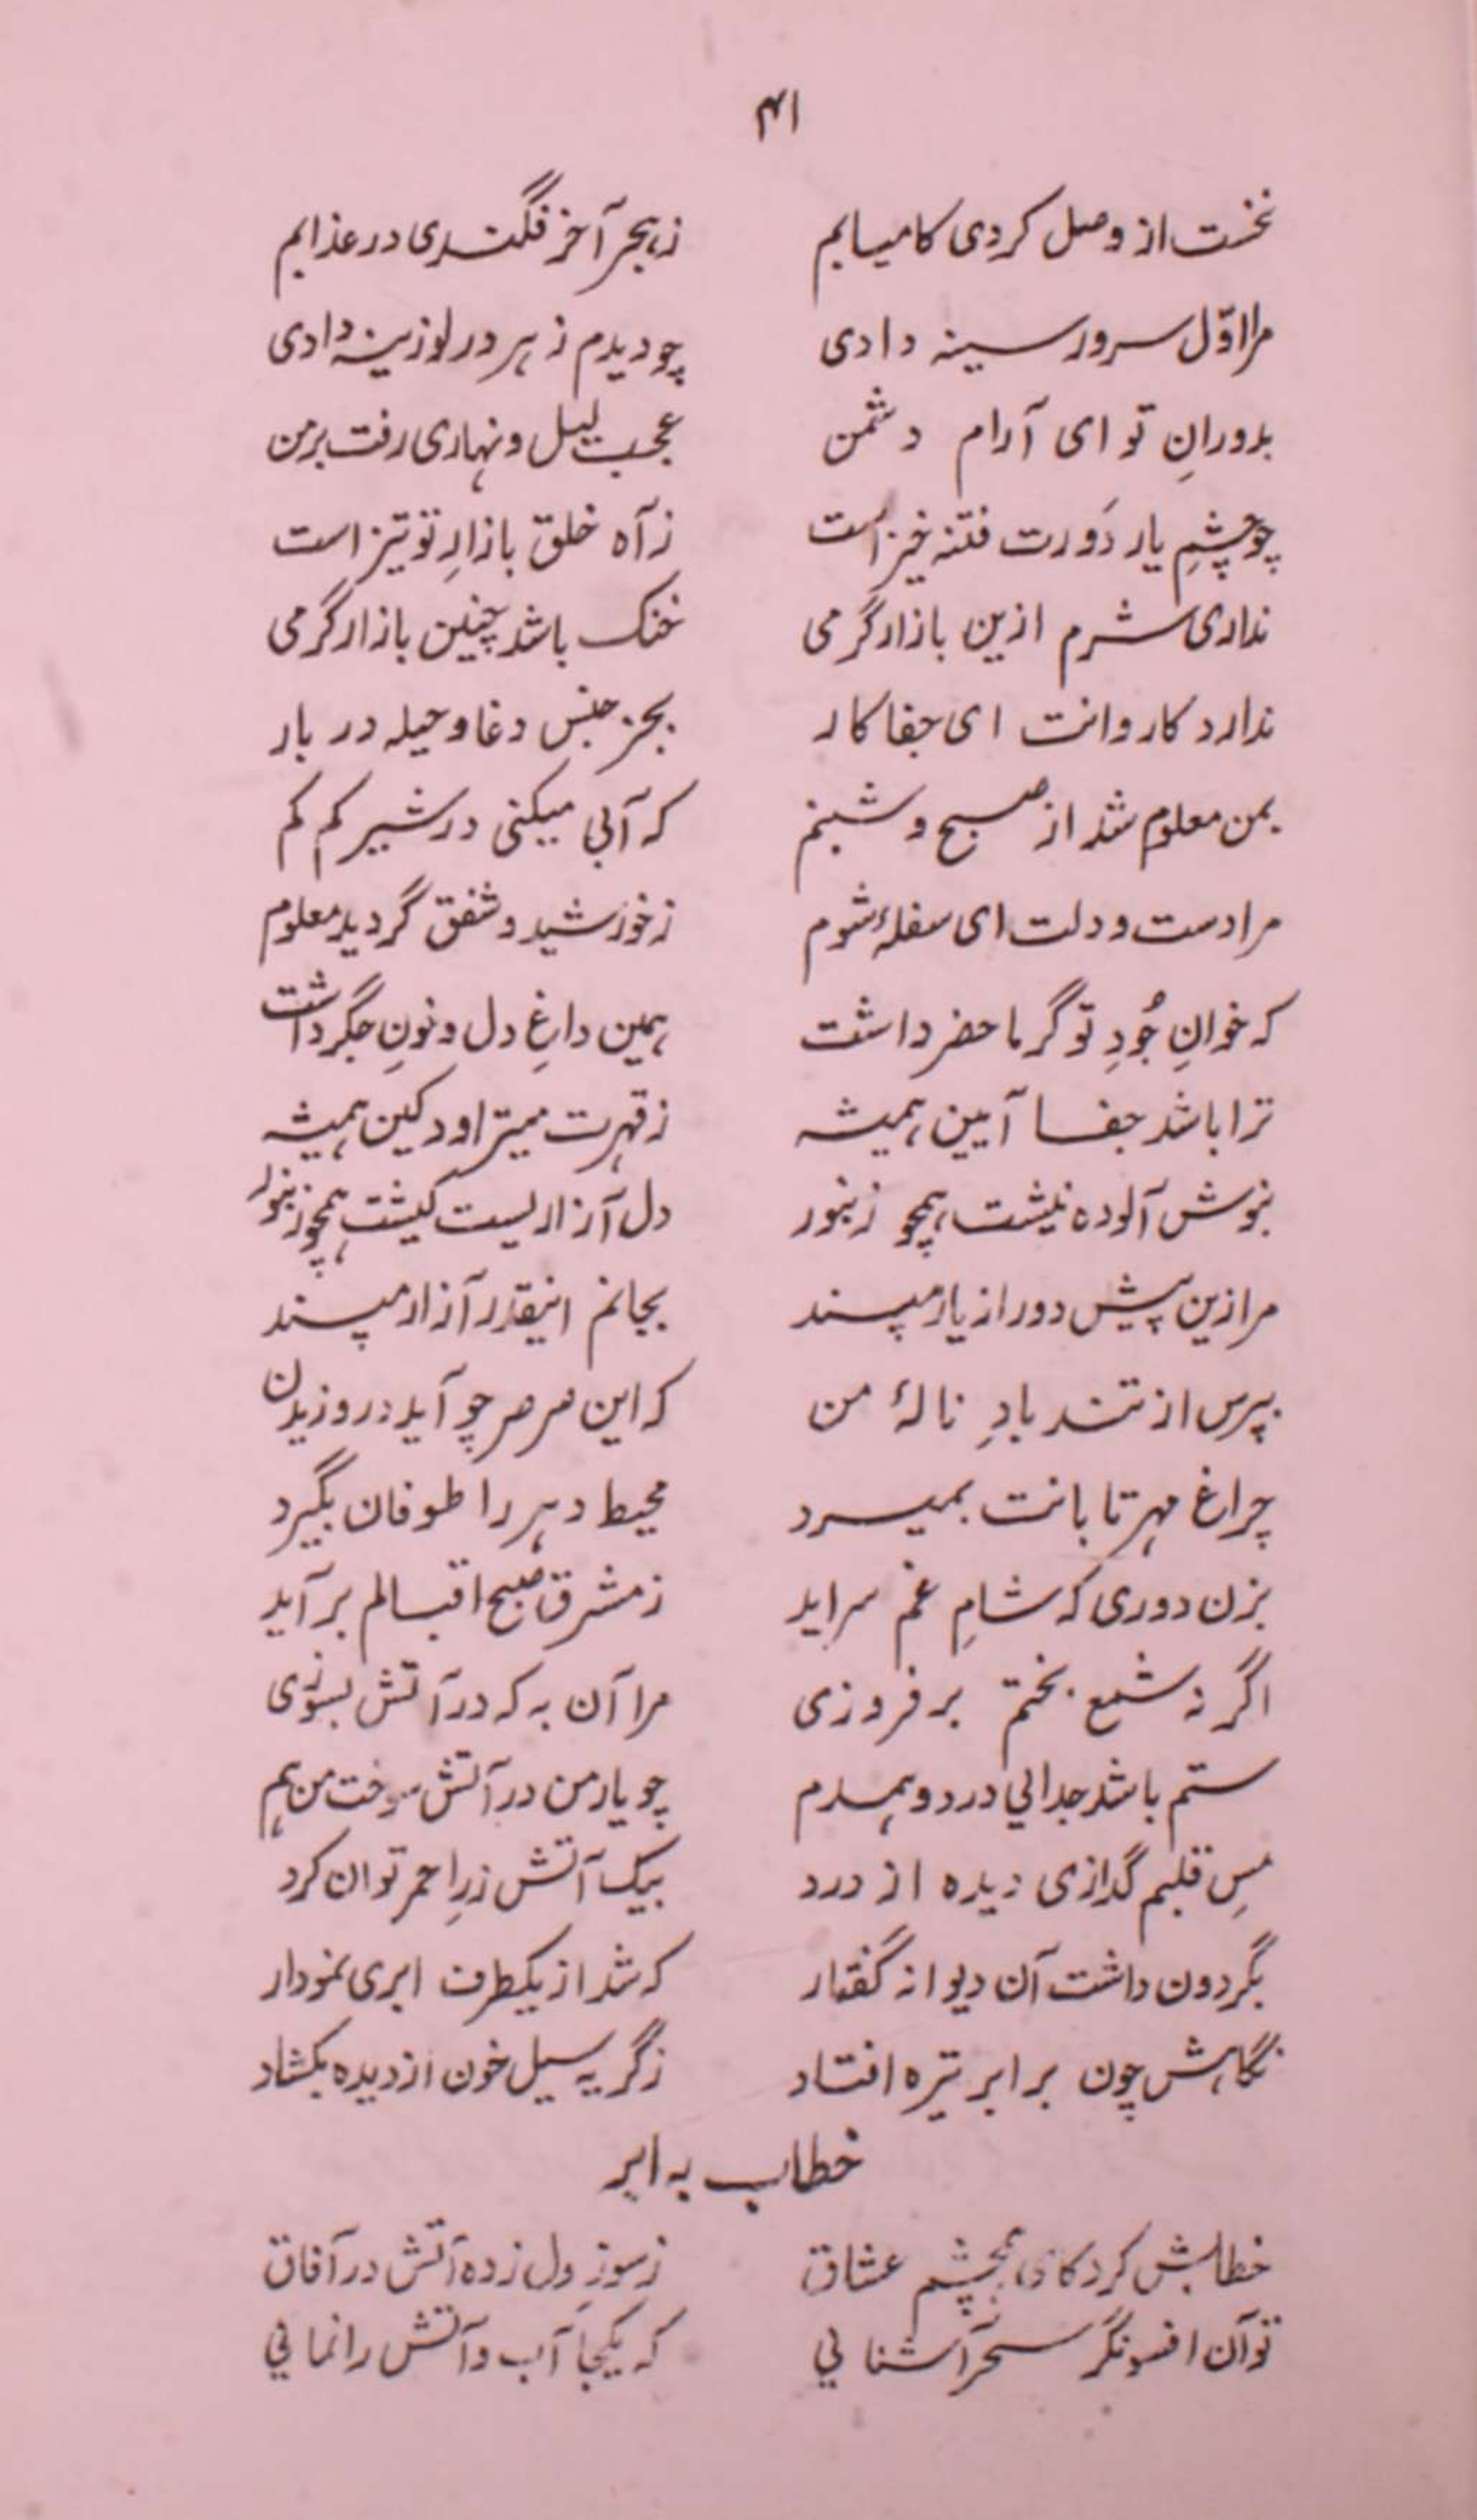 ۴۱
نخست از وصل کردی کامیابم ز هجر آخر فگندی در عذابم
مرا اوّل سرور سینه دادی چو دیدم زهر در لوزینه دادی
بدورانِ تو ای آرام دشمن عجب لیل و نهاری رفت بر من
چو چشمِ یار دَورت فتنه خیز است ز آه خلق بازارِ تو تیز است
نداری شرم ازین بازار گرمی خنک باشد چنین بازار گرمی
ندارد کاروانت ای جفا کار بجز جنس دغا و حیله در بار
بمن معلوم شد از صبح و شبنم که آبی میکنی در شیر کم کم
مرا دست و دلت ای سفلهٔ شوم ز خورشید و شفق گردید معلوم
که خوانِ جُودِ تو گر ماحضر داشت همین داغِ دل و خونِ جگر داشت
ترا باشد جفا آیین همیشه ز قهرت میتراود کین همیشه
بنوش آلوده نیشت همچو زنبور دل آزاریست کیشت همچو زنبور
مرا زین پیش دور از یار مپسند بجانم اینقدر آزار مپسند
بپرس از تند بادِ نالهٔ من که این صرصر چو آید در وزیدن
چراغ مهر تابانت بمیرد محیط دهر را طوفان بگیرد
بزن دوری که شامِ غم سراید ز مشرق صبح اقبالم برآید
اگر نه شمع بختم برفروزی مرا آن به که در آتش بسوزی
ستم باشد جدایی در دو همدم چو یار من در آتش سوخت من هم
مسِ قلبم گدازی دیده از درد بیک آتش زرِ احمر توان کرد
بگردون داشت آن دیوانه گفتار که شد از یکطرف ابری نمودار
نگاهش چون بر ابر تیره افتاد ز گریه سیل خون از دیده بکشاد
خطاب به ابر
خطابش کرد کای همچشم عشاق ز سوزِ دل زده آتش در آفاق
تو آن افسونگر سحر آشنایی که یکجا آب و آتش را نمایی